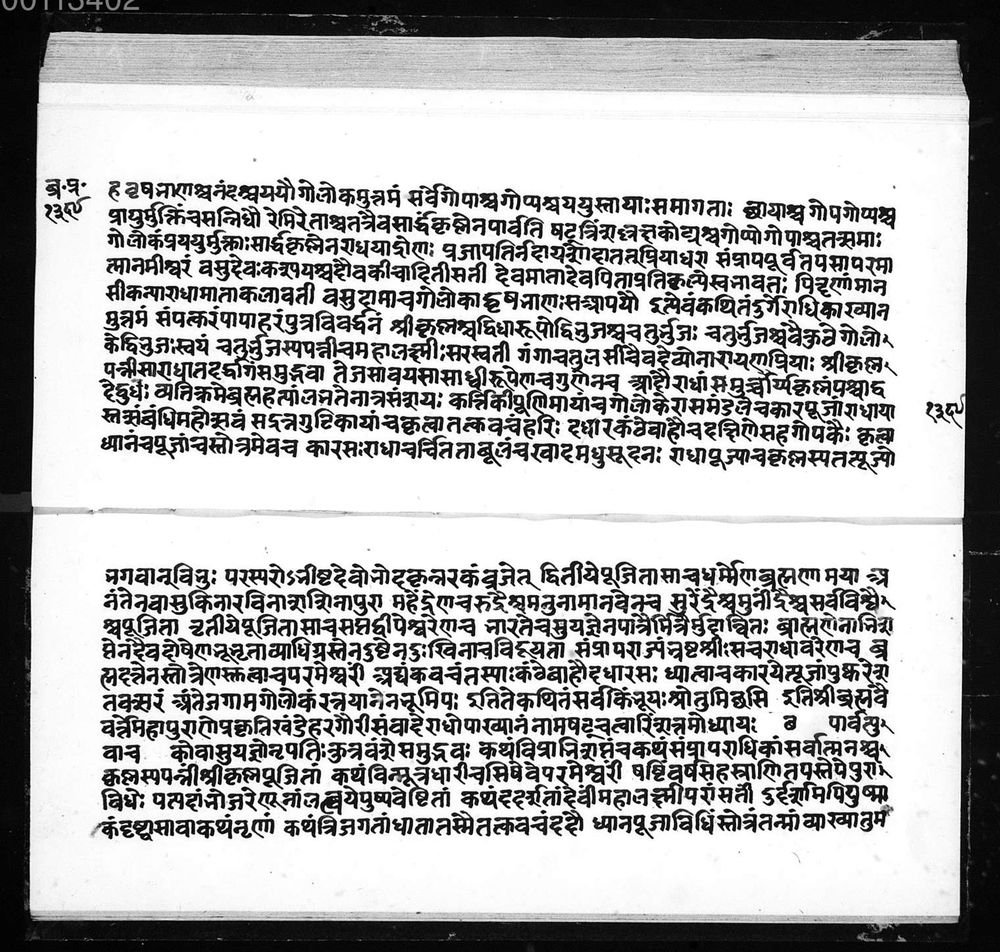 00113402
ब्र॰प्र॰
१३९
ह वृषभाणश्च नंदश्च ययौ गोलोकमुत्तमं सर्वे गोपाश्च गोप्यश्च ययुस्तायाः समागताः छायाश्च गोपगोप्यश्च
प्रापुर्मुक्तिं च सन्निधौ रेमिरे ताश्च तत्रैव सार्द्धं कृष्णेन पार्वति षट्त्रिंशल्लक्षकोट्यश्च गोप्यो गोपाश्च तत्समाः
गोलोकं प्रययुर्मुक्ताः सार्द्धं कृष्णेन राधया द्रोणः प्रजापतिर्नंदो यशोदा तत्प्रिया धरा संप्राप पूर्वतपसा परमा
त्मानमीश्वरं वसुदेवः कश्यपश्च देवकी चादितीसती देवमाता देवपिता प्रतिकल्पे स्वभावतः पितृणां मान
सी कन्या राधामाता कलावती वसुदामा च गोलोकाद्वृषभाणः सआपयौ इत्येवं कथितं दुर्गे राधिकाख्यान
मुत्तमं संपत्करं पापहरं पुत्रविवर्द्धनं श्रीकृष्णश्च द्विधारूपो द्विभुजश्च चतुर्भुजः चतुर्भुजश्च वैकुंठे गोलो
के द्विभुजः स्वयं चतुर्भुजस्य पत्नी च महालक्ष्मीः सरस्वती गंगा च तुलसी चैव देव्यो नारायणप्रियाः श्रीकृष्ण
पत्नी सा राधा तदर्द्धांगसमुद्भवा तेजसा वयसा साध्वी रूपेण च गुणेन च आदौ राधां समुच्चार्य कृष्णं पश्चाद्व
देद्बुधः व्यतिक्रमे ब्रह्महत्यां लभते नात्र संशयः कार्त्तिकीपूर्णिमायां च गोलोके रासमंडले चकार पूजां राधाया
१३९
स्तत्संबंधिमहोत्सवं सद्रत्नगुटिकायां च कृत्वा तत्कवचं हरिः दधार कंठे बाहौ च दक्षिणे सह गोपकैः कृत्वा
ध्यानं च पूजां च स्तोत्रमेव च कार सः राधाचर्चितताबूलं चखाद मधुसूदनः राधा पूज्या च कृष्णस्य तत्पूज्यो
भगवान्विभुः परस्परोऽभीष्टदेवो भेदकृन्नरकं व्रजेत् द्वितीये पूजिता सा च धर्मेण ब्रह्मणा मया अ
नंतेन वासुकिना रविना शशिना पुरा महेंद्रेण च रुद्रैश्च मनुना मानवेन च सुरेंद्रैश्च मुनींद्रैश्च सर्वविश्वै
श्च पूजिता तृतीये पूजिता सा च सप्तद्वीपेश्वरेण च भारते च सुयज्ञेन पात्रैर्मित्रैर्मुदान्वितः ब्राह्मणेनाभिश
प्तेन दैवदोषेण भूभृता व्याधिग्रस्तेन दुष्टेन दुःखिना च विदूयता संप्राप राज्यं भ्रष्टश्रीः स च राधावरेण च ब्र
ह्मदत्तेन स्तोत्रेण स्तुत्वा च परमेश्वरीं अभेद्यं कवचं तस्याः कंठे बाहौ दधार सः ध्यात्वा चकार येत्पूजां पुष्करे श
तवत्सरं अंते जगाम गोलोकं रत्नयानेन भूमिपः इति ते कथितं सर्वं किं भूयः श्रोतुमिछसि इति श्रीब्रह्मवै
वर्त्ते महापुराणे प्रकृतिखंडे हरगौरीसंवादे राधोपाख्यानं नाम षट्चत्वारिंशत्तमोध्यायः छ पार्वत्यु
वाच को वा सुयज्ञो नृपतिः कुत्र वंशे समुद्भवः कथं विप्राभिशप्तं च कथं संप्राप राधिकां सर्वात्मनश्च
कृष्णस्य पत्नीं श्रीकृष्णपूजितां कथं विन्मूत्रधारी च सिषेवे परमेश्वरीं षष्टिवर्षसहस्राणि तपस्तेपे पुरा
विधेः यत्पदांभोजरेणूनां लब्धये पुष्पवेष्टितां कथं ददर्श तां देवीं महालक्ष्मीं परां सतीं दुर्दर्शामपि युष्मा
कं दृष्ट्वा सा वा कथं नृणां कथं त्रिजगतां धाता तस्मै तत्कवचं ददौ ध्यानपूजाविधिं स्तोत्रं तन्मां व्याख्यातुम